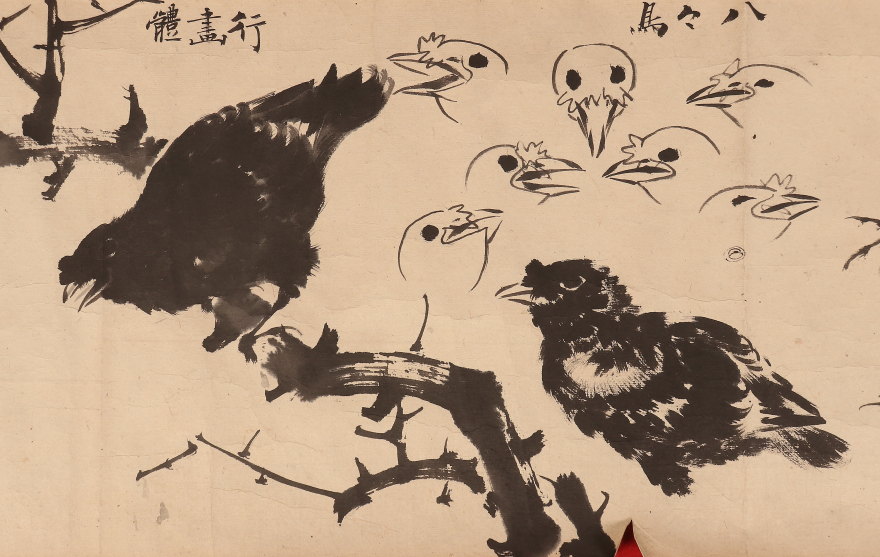 八々鳥
行畫體